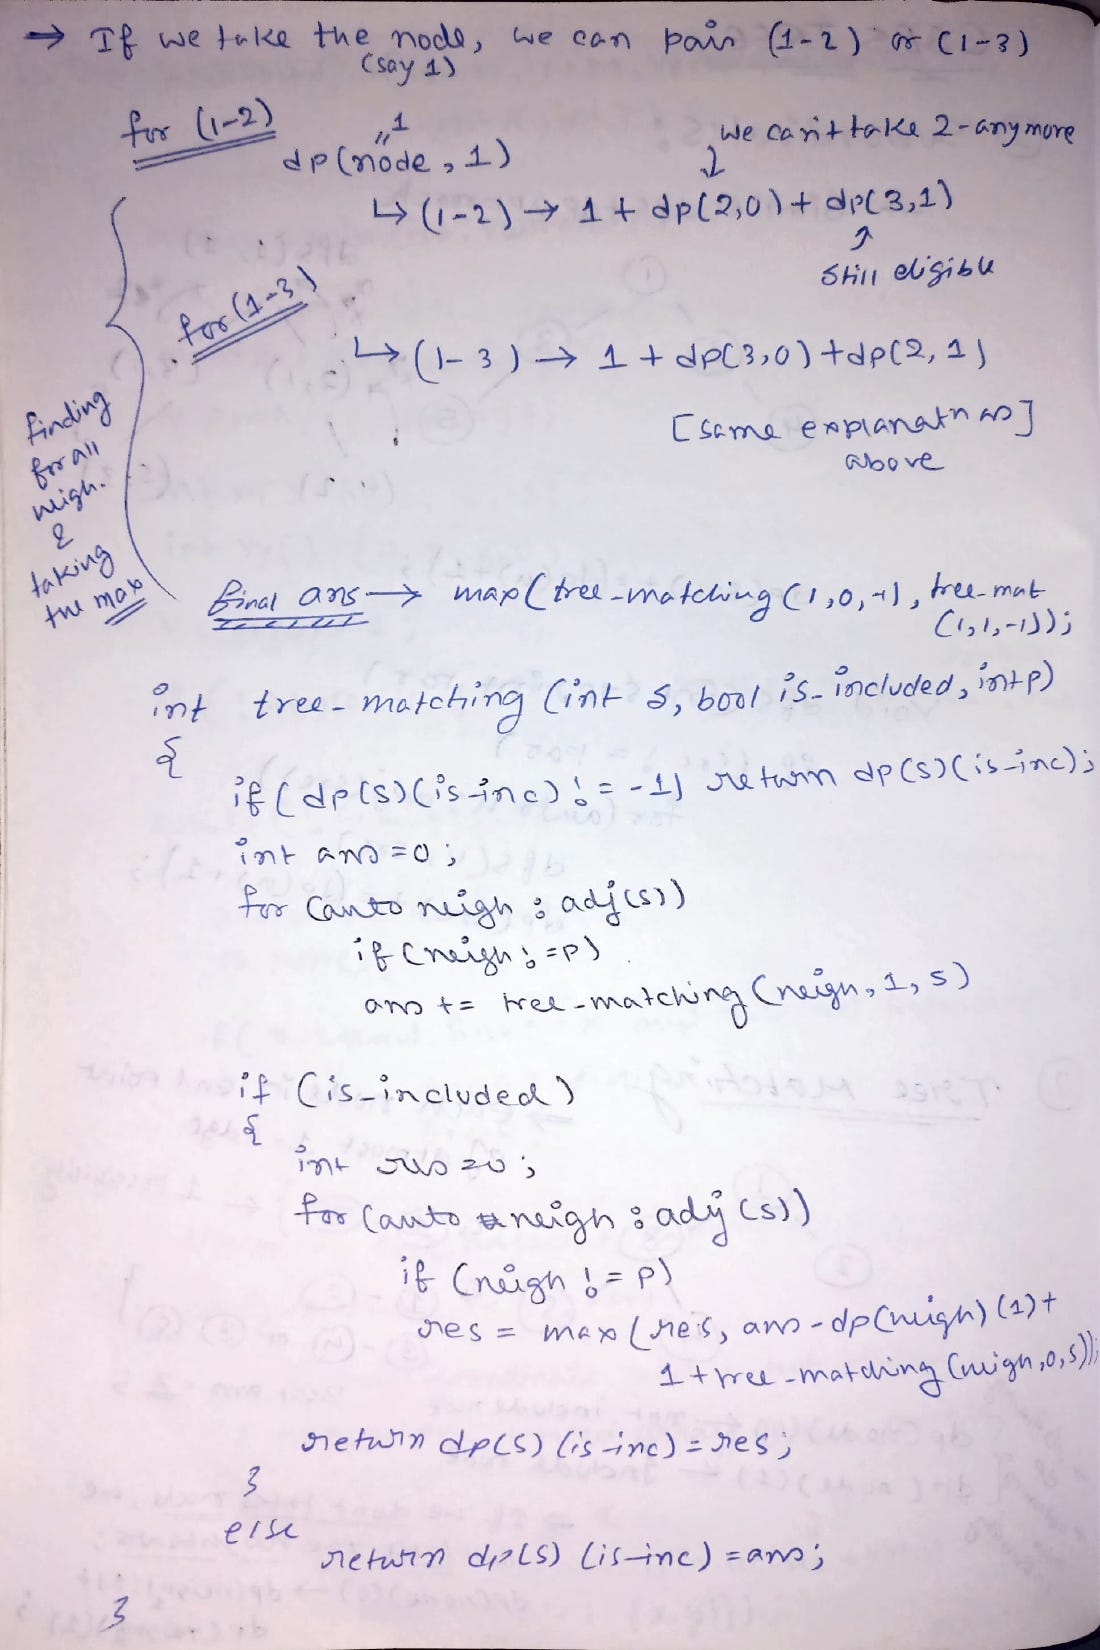 → If we take the node, we can pair (1-2) or (1-3)
(say 1)
for (1-2)
1
dp(node, 1)
we can't take 2-anymore
↳ (1-2) → 1 + dp(2,0) + dp(3,1)
still eligible
for (1-3)
↳ (1-3) → 1 + dp(3,0) + dp(2,1)
[same explanatn as]
above
finding
for all
neigh.
&
taking
the max
final ans → max(tree-matching(1,0,-1), tree-mat
(1,1,-1));
int tree-matching (int s, bool is-included, int p)
{
if(dp(s)(is-inc) != -1) return dp(s)(is-inc);
int ans=0;
for (auto neigh : adj(s))
if (neigh != p)
ans += tree-matching(neigh, 1, s)
if (is-included)
{
int res=0;
for (auto neigh : adj(s))
if (neigh != p)
res = max(res, ans - dp(neigh)(1) +
1 + tree-matching(neigh,0,s));
return dp(s)(is-inc) = res;
}
else
return dp(s)(is-inc) = ans;
}